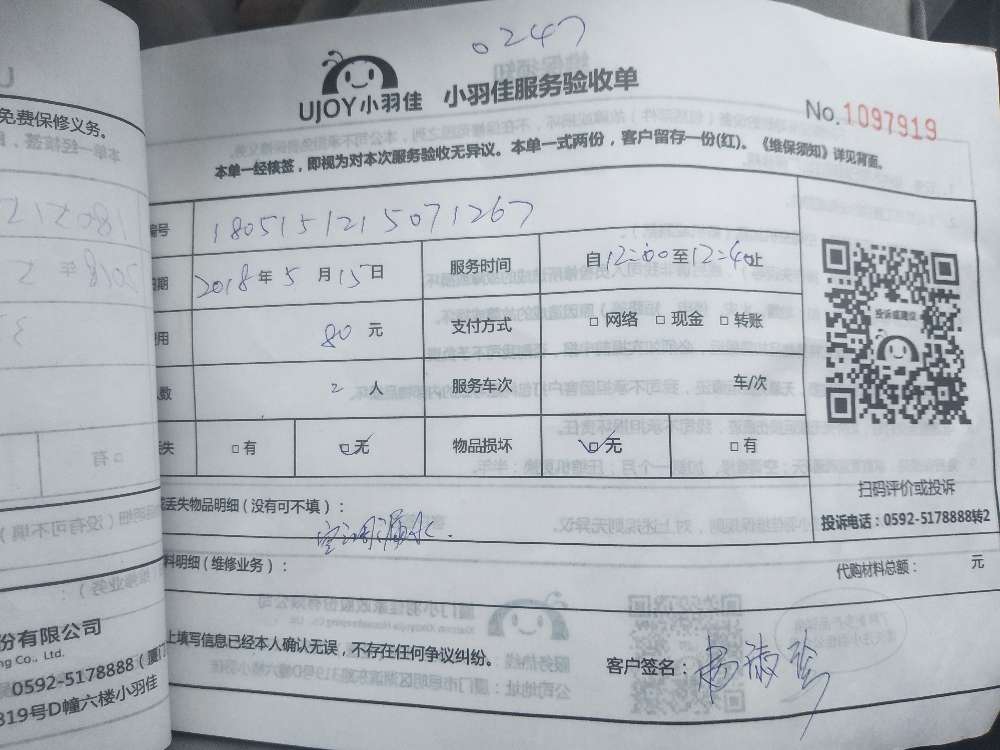 0247
UJOY小羽佳 小羽佳服务验收单
No.1097919
本单一经核签，即视为对本次服务验收无异议。本单一式两份，客户留存一份(红)。《维保须知》详见背面。
编号 1805151215071267
日期 2018年5月15日 服务时间 自12:00至12:40止
用 80元 支付方式 □网络 □现金 □转账
人数 2人 服务车次 车/次
丢失 □有 ☑无 物品损坏 ☑无 □有
投诉或建议
扫码评价或投诉
投诉电话：0592-5178888转2
丢失物品明细（没有可不填）：
空调漏水.
料明细（维修业务）： 代购材料总额： 元
上填写信息已经本人确认无误，不存在任何争议纠纷。 客户签名：
免费保修义务。
份有限公司
ng Co., Ltd.
0592-5178888（厦门
319号D幢六楼小羽佳